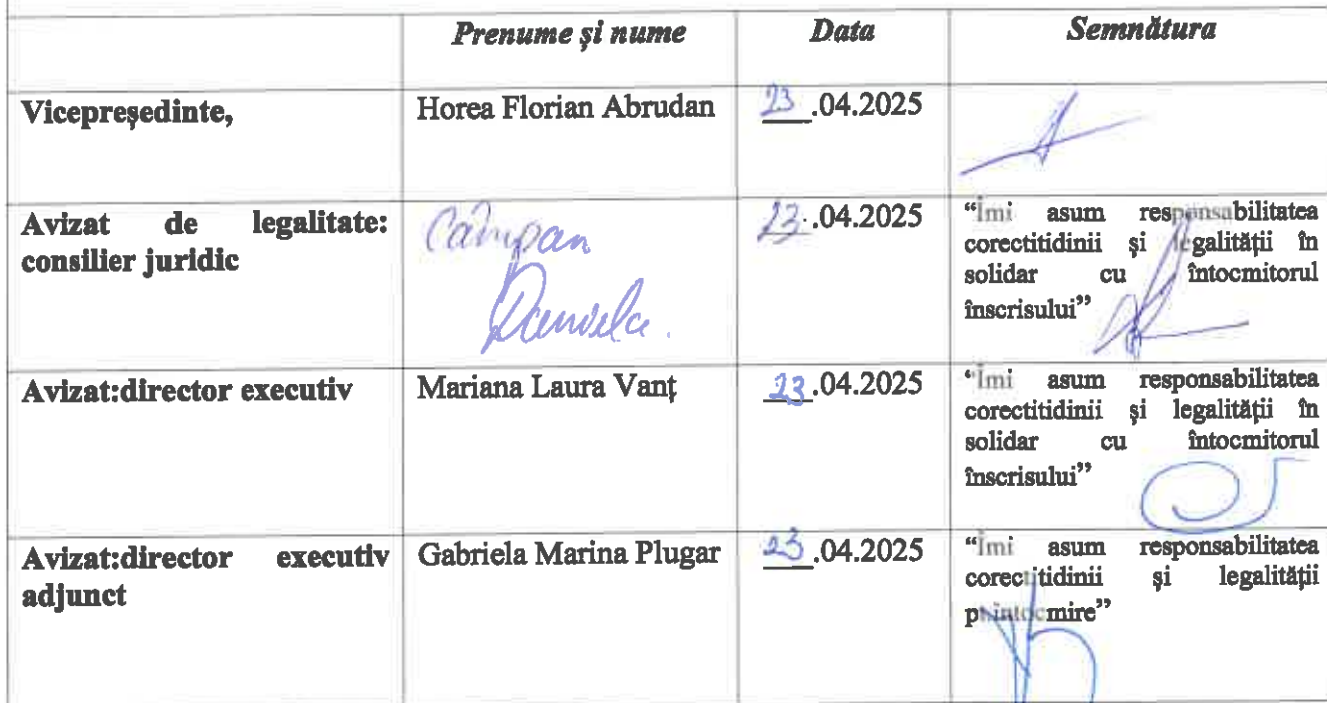 Prenume și nume Data Semnătura
Vicepreședinte, Horea Florian Abrudan 23.04.2025
Avizat de legalitate: Câmpan 23.04.2025 “Îmi asum responsabilitatea
consilier juridic Daniela. corectitidinii și legalității în
solidar cu întocmitorul
înscrisului”
Avizat:director executiv Mariana Laura Vanț 23.04.2025 “Îmi asum responsabilitatea
corectitidinii și legalității în
solidar cu întocmitorul
înscrisului”
Avizat:director executiv Gabriela Marina Plugar 23.04.2025 “Îmi asum responsabilitatea
adjunct corectitidinii și legalității
pt.intocmire”